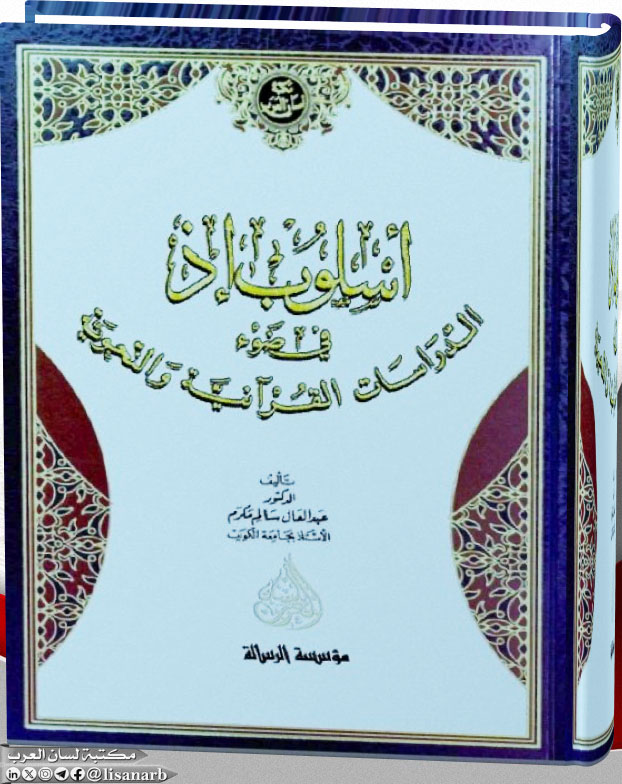 أُسْلُوبُ إذْ
في ضَوْء
الدّرَاسَات القُرْآنيَّة وَالنَّحويَّة
تأليف
الدكتور
عبد العال سالم مكرم
الأستاذ بجامعة الكويت
مؤسسة الرسالة
مكتبة لسان العرب
@lisanarb